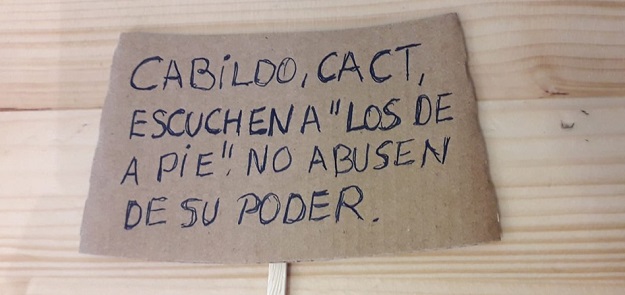 CABiLDO, CACT,
ESCUCHEN A "LOS DE
A PiE". NO ABUSEN
DE SU PODER.